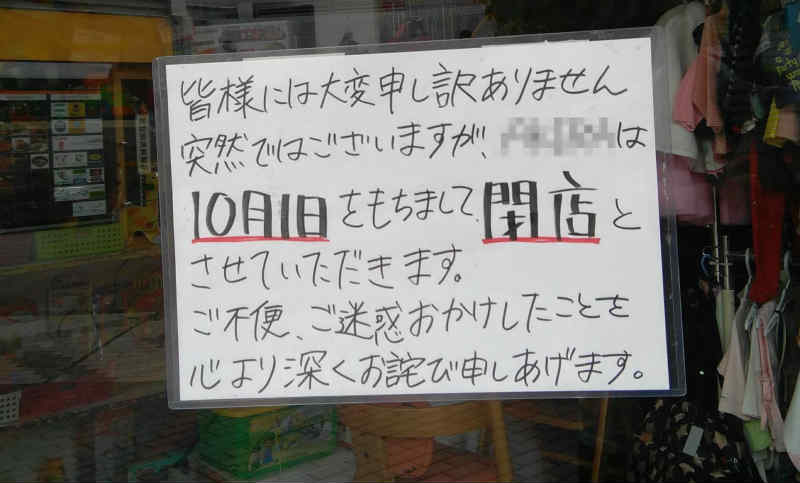 皆様には大変申し訳ありません
突然ではございますが、は
10月1日をもちまして、閉店と
させていただきます。
ご不便、ご迷惑おかけしたことを
心より深くお詫び申しあげます。